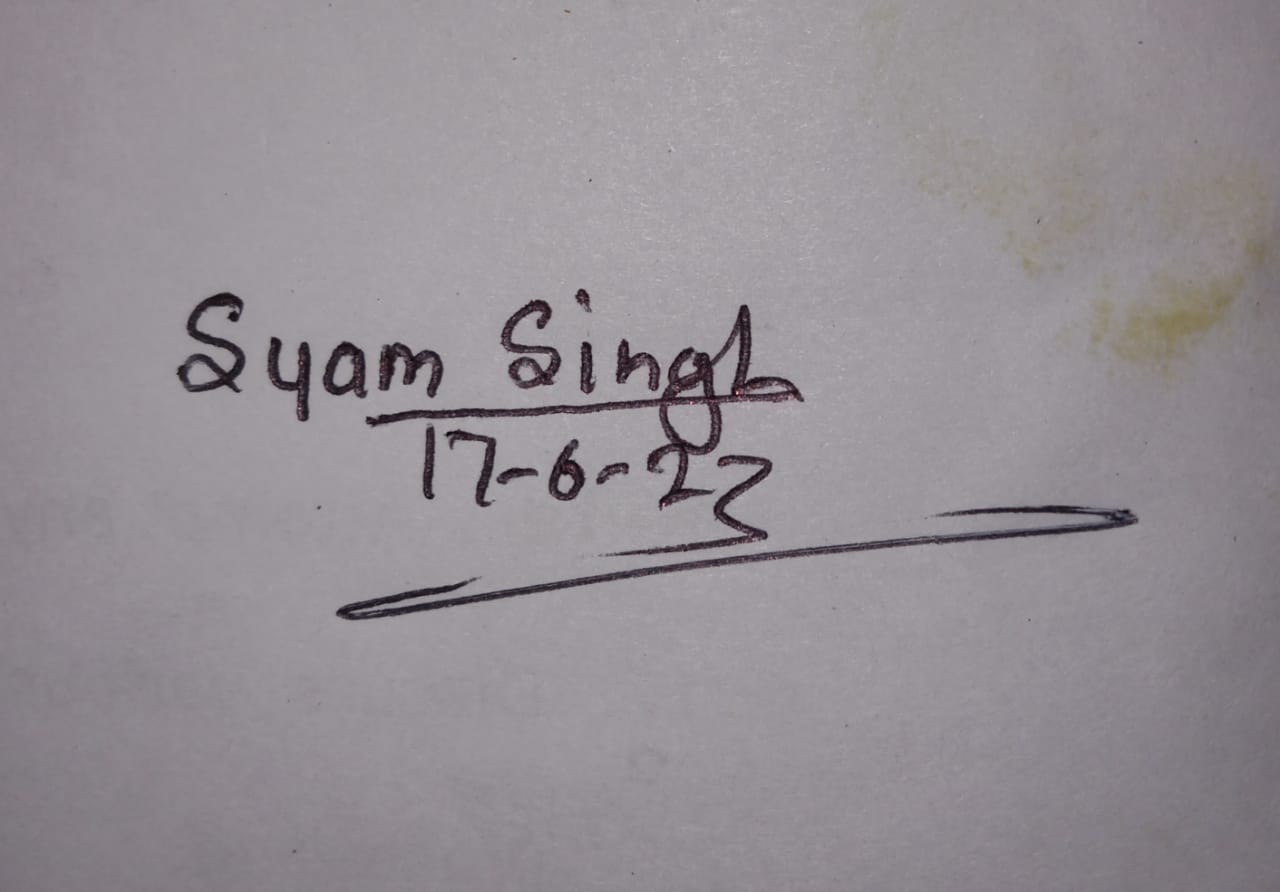 Syam Singh
17-6-23